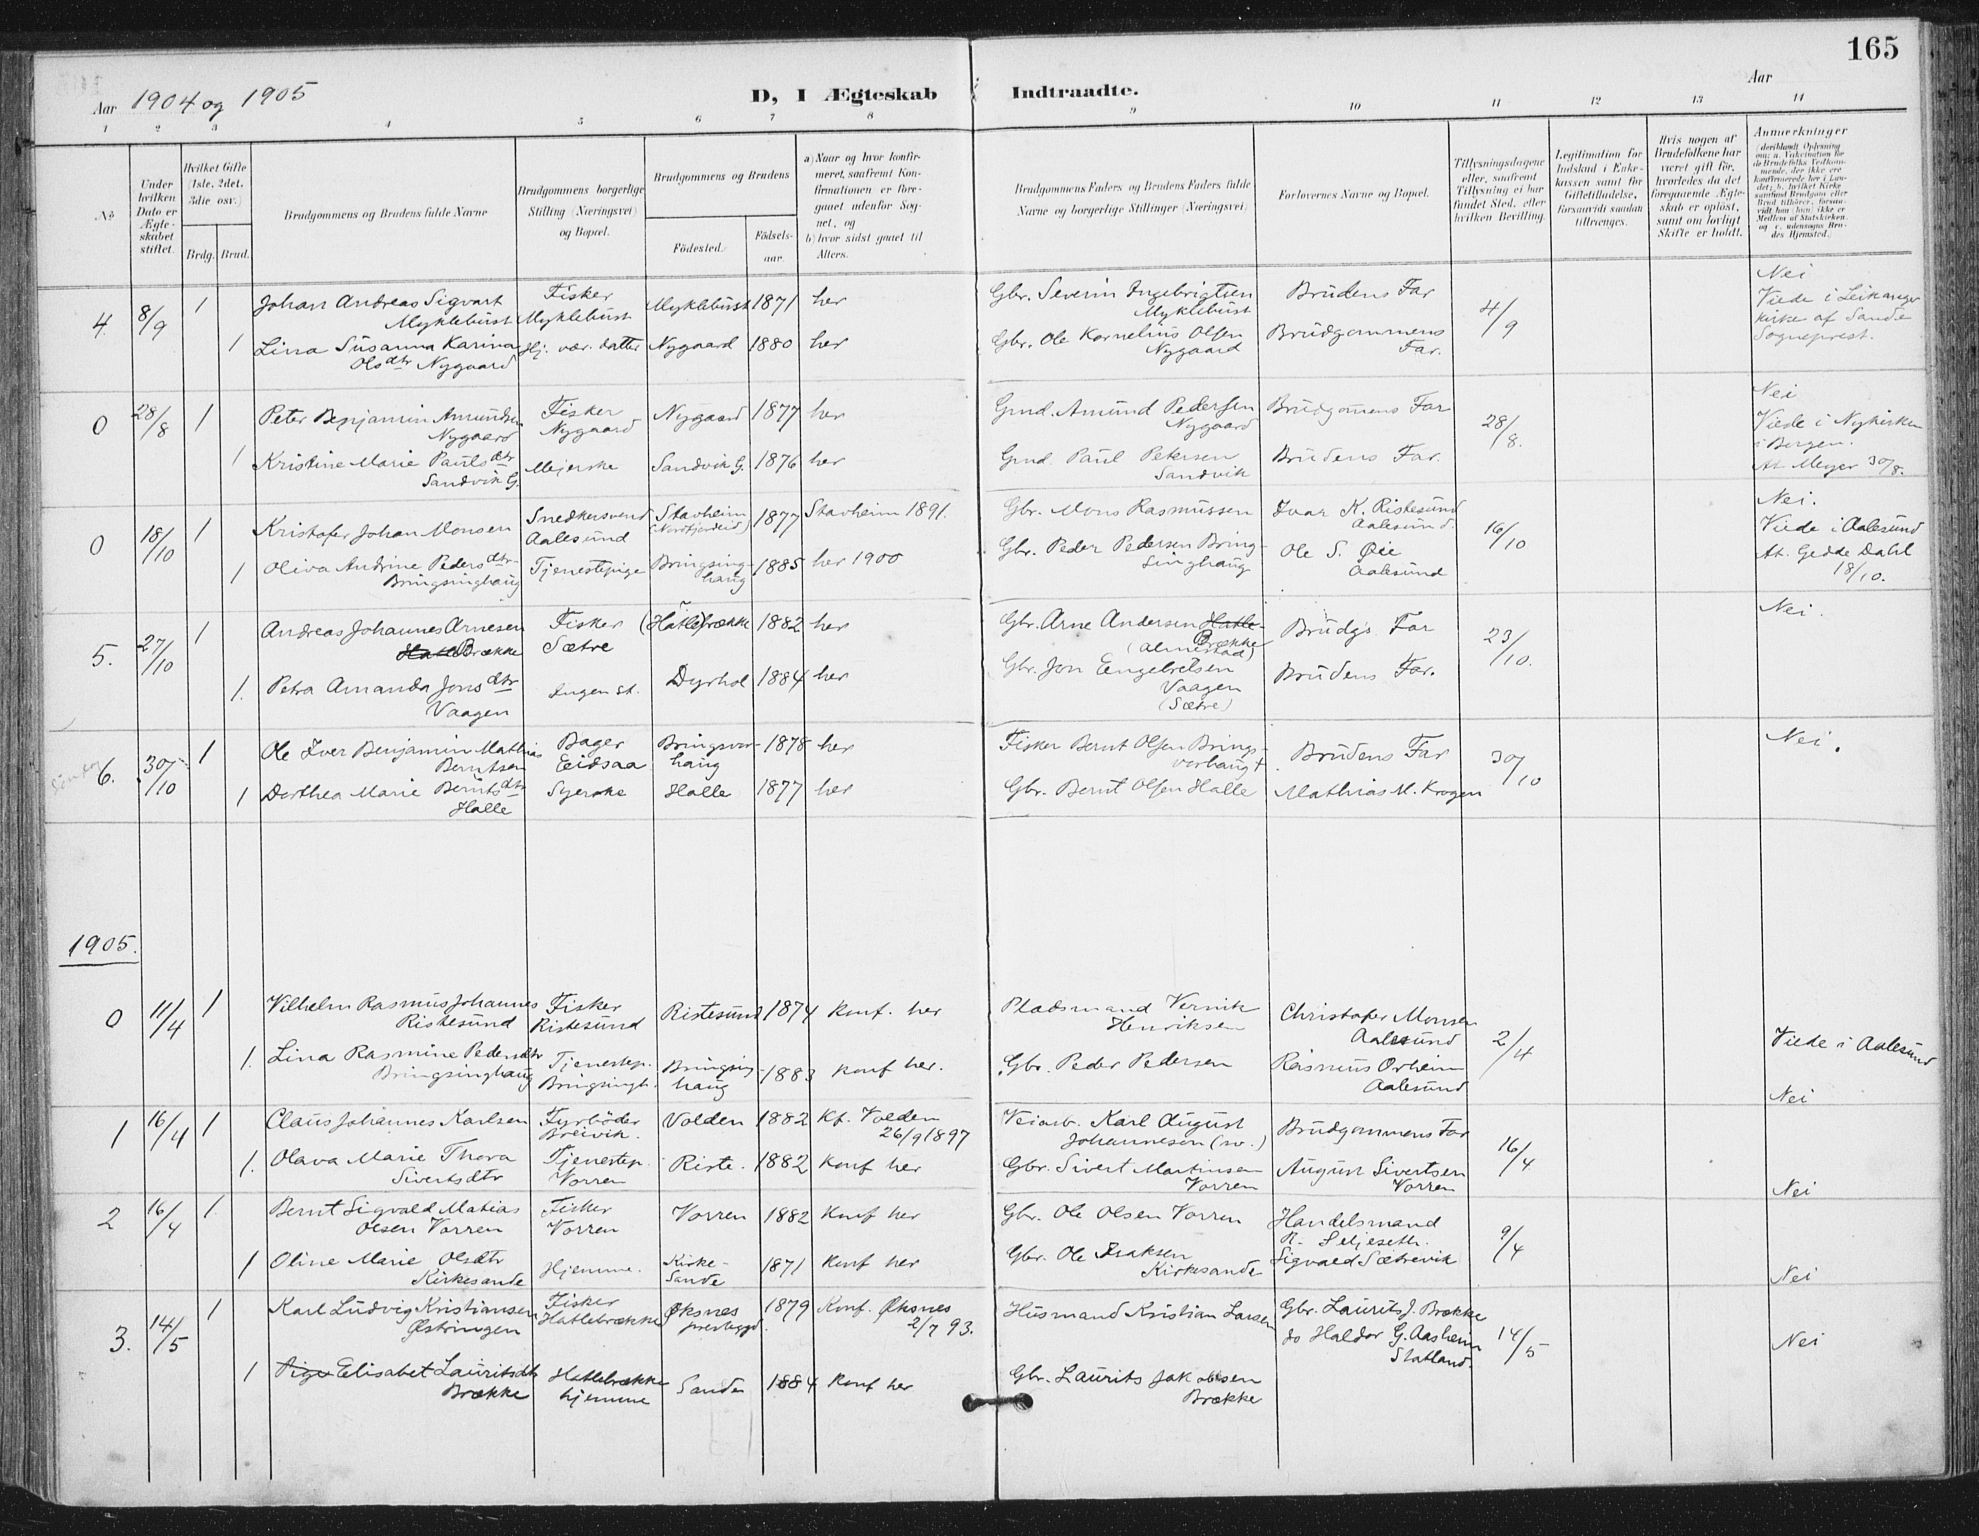 165
Aar 1904 og 1905
D, I Ægteskab Indtraadte.
Aar
1 2 3 4 5 6 7 8 9 10 11 12 13 14
No
Under hvilken Dato er Ægteskabet stiftet.
Hvilket Gifte (1ste, 2det, 3die osv.)
Brdg. Brud.
Brudgommens og Brudens fulde Navne
Brudgommens borgerlige Stilling (Næringsvei) og Bopæl.
Brudgommens og Brudens
Fødested. Fødselsaar.
a) Naar og hvor konfirmeret, saafremt Konfirmationen er foregaaet udenfor Sognet, og
b) hvor sidst gaaet til Alters.
Brudgommens Faders og Brudens Faders fulde Navne og borgerlige Stillinger (Næringsvei)
Forlovernes Navne og Bopæl.
Tillysningsdagene eller, saafremt Tillysning ei har fundet Sted, efter hvilken Bevilling.
Legitimation for Indskud i Enkekassen samt for Giftetilladelse, forsaavidt saadan tiltrænges.
Hvis nogen af Brudefolkene har været gift før, hvorledes da det foregaaende Ægteskab er opløst, samt om lovligt Skifte er holdt.
Anmerkninger
4 8/9 1 Johan Andreas Sigvart Myklebust Fisker Myklebust Myklebust 1871 her Gbr. Severin Ingebrigtsen Myklebust Brudens Far 4/9 Nei
Viede i Leikanger kirke af Sande Sogneprest.
1 Lina Susanna Karina Olsdtr Nygaard Hj. vær. datter Nygaard 1880 her Gbr. Ole Kornelius Olsen Nygaard Brudgommens Far.
0 28/8 1 Peter Benjamin Amundsen Nygaard Fisker Nygaard Nygaard 1877 her Gmd. Amund Pedersen Nygaard Brudgomens Far 28/8. Nei
Viede i Nykirken i Bergen.
At. Meyer 30/8.
1 Kristine Marie Paulsdtr Sandvik G. Mejerske Sandvik G. 1876 her Gmd. Paul Petersen Sandvik Brudens Far.
0 18/10 1 Kristofer Johan Monsen Snedkersvend Aalesund Stavheim (Nordfjordeid) 1877 Stavheim 1891. Gbr. Mons Rasmussen Ivar K. Ristesund Aalesund. 16/10 Nei.
Viede i Aalesund
At. Gedde Dahl 18/10.
1 Oliva Andrine Pedersdtr Bringsinghaug Tjenestepige Bringsinghaug 1885 her 1900 Gbr. Peder Pedersen Bringsinghaug Ole S. Øie Aalesund
5. 27/10 1 Andreas Johannes Arnesen Hatlebrække Fisker Sætre (Hatle)brække 1882 her Gbr. Arne Andersen Hatle-Brække (Almestad) Brudgs Far 23/10. Nei.
1. Petra Amanda Jonsdtr Vaagen Ingen st. Dyrhol 1884 her Gbr. Jon Engebretsen Vaagen (Sætre) Brudens Far.
Søndag
6. 30/10 1 Ole Iver Benjamin Mathias Berntsen Bager Eidsaa Bringsvorhaug 1878 her Fisker Bernt Olsen Bringsvorhaug † Brudens Far 30/10 Nei.
1 Dorthea Marie Berntsdtr Halle Syerske Halle 1877 her Gbr. Bernt Olsen Halle Mathias M. Krogen
1905.
0 11/4 1 Vilhelm Rasmus Johannes Ristesund Fisker Ristesund Ristesund 1874 Konf. her Pladsmand Vernik Henriksen Christofer Monsen Aalesund 2/4 Viede i Aalesund
1. Lina Rasmine Pedersdtr Bringsinghaug Tjenestep. Bringsingh. Bringsinghaug 1883 Konf her. Gbr. Peder Pedersen Rasmus Orheim Aalesund Nei
1 16/4 1 Claus Johannes Karlsen Fyrbøder Breivik. Volden 1882 Kf. Volden 26/9 1897 Veiarb. Karl August Johannesen (sv.) Brudgommens Far 16/4
1. Olava Marie Thora Sivertsdtr Tjenestep. Vorren Riste. 1882 Konf her Gbr. Sivert Martinsen Vorren August Sivertsen Vorren Nei
2 16/4 1. Bernt Sigvald Matias Olsen Vorren Fisker Vorren Vorren 1882 Konf her Gbr. Ole Olsen Vorren Handelsmand R. Seljeseth. 9/4
1 Oline Marie Olsdtr Kirkesande Hjemme. Kirke-Sande 1871 Konf her Gbr. Ole Isaksen Kirkesande Sigvald Sætrevik Nei
3. 14/5 1 Karl Ludvig Kristiansen Østringen Fisker Hatlebrække Øksnes prestegjd. 1879 Konf. Øksnes 2/7 93. Husmand Kristian Larsen Gbr. Laurits J. Brække
do Haldor G. Aasheim Statland. 14/5 Nei
1 Pige Elisabet Lauritsdtr Brække Hatlebrække hjemme Sande 1884 Konf her Gbr. Laurits Jakobsen Brække